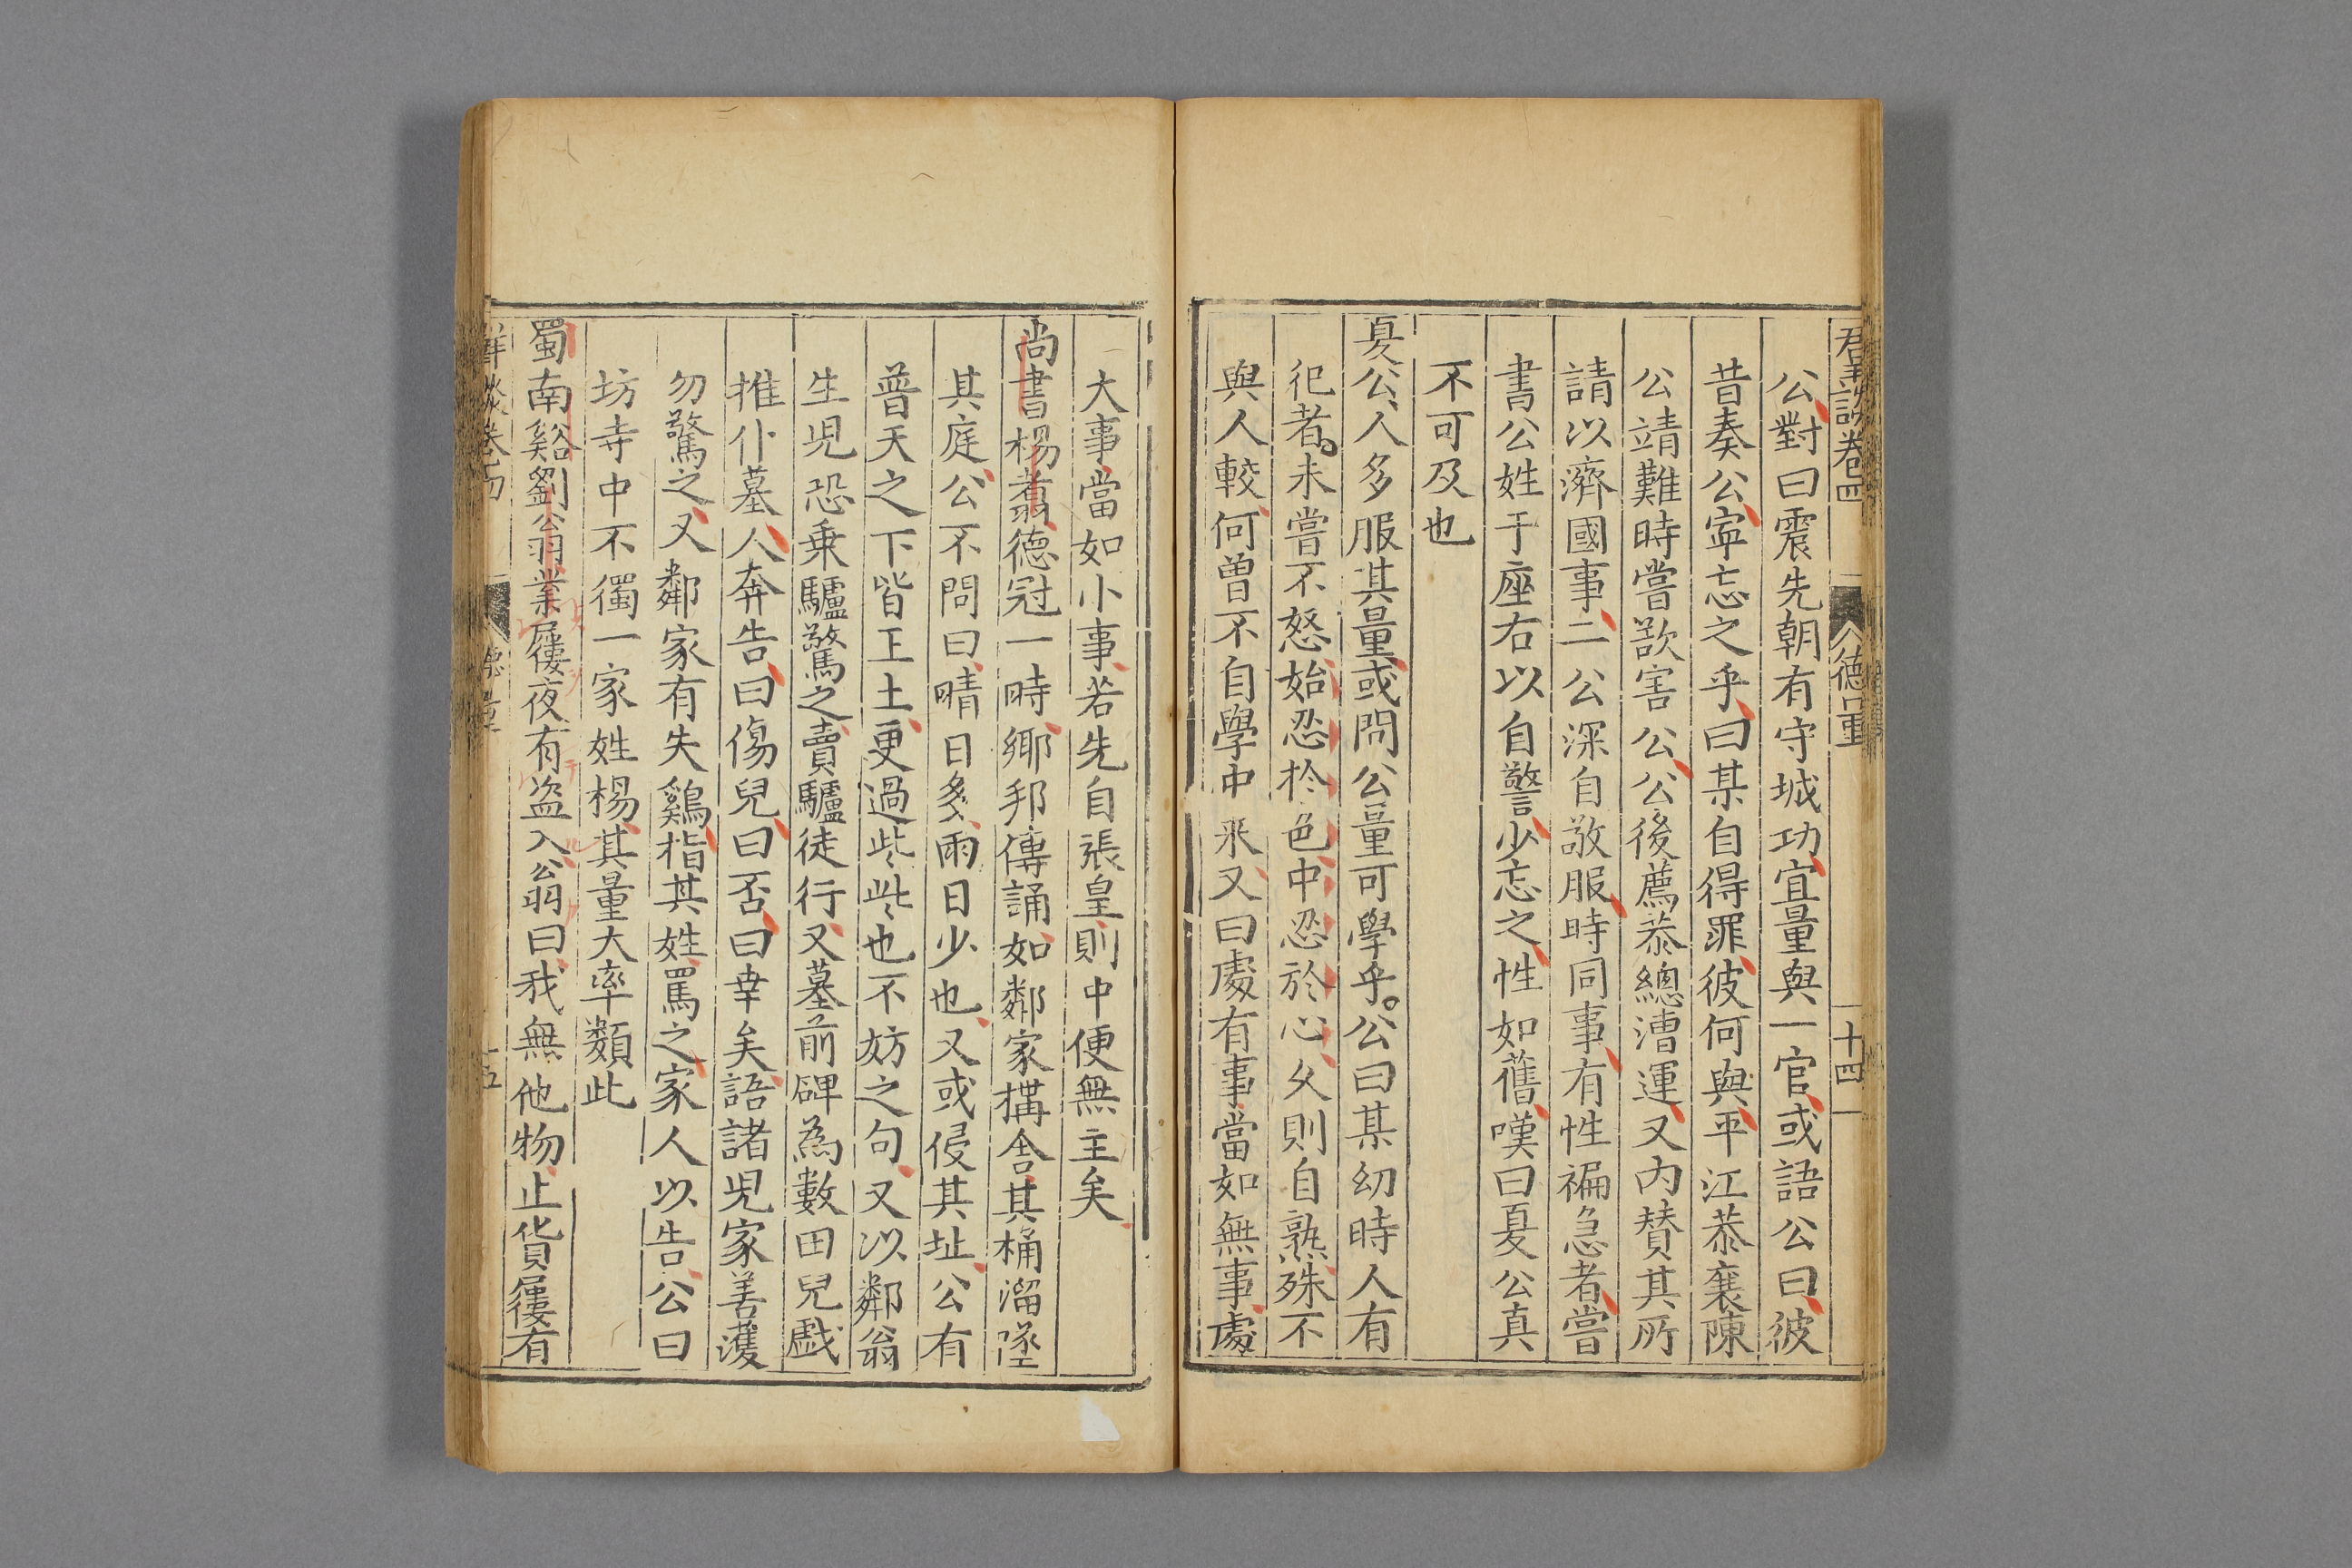 羣談卷四 德量 十四
公對曰震先朝有守城功宜量與一官或語公曰彼
昔奏公寧忘之乎曰某自得罪彼何與平江恭襄陳
公靖難時嘗欲害公公後薦恭總漕運又內賛其所
請以濟國事二公深自敬服時同事有性褊急者嘗
書公姓于座右以自警少忘之性如舊嘆曰夏公真
不可及也
夏公人多服其量或問公量可學乎公曰某幼時人有
犯者未嘗不怒始忍於色中忍於心久則自熟殊不
與人較何曾不自學中來又曰處有事當如無事處
大事當如小事若先自張皇則中便無主矣
尚書楊翥德冠一時鄉邦傳誦如鄰家搆舍其桶溜墜
其庭公不問曰晴日多雨日少也又或侵其址公有
普天之下皆王土更過些些也不妨之句又以鄰翁
生児恐乗驢驚之賣驢徒行又墓前碑為數田兒戯
推仆墓人奔告曰傷兒曰否曰幸矣語諸児家善護
勿驚之又鄰家有失鷄指其姓罵之家人以告公曰
坊寺中不獨一家姓楊其量大率類此
蜀南谿劉公羽業屨夜有盗入翁曰我無他物止貨屨有